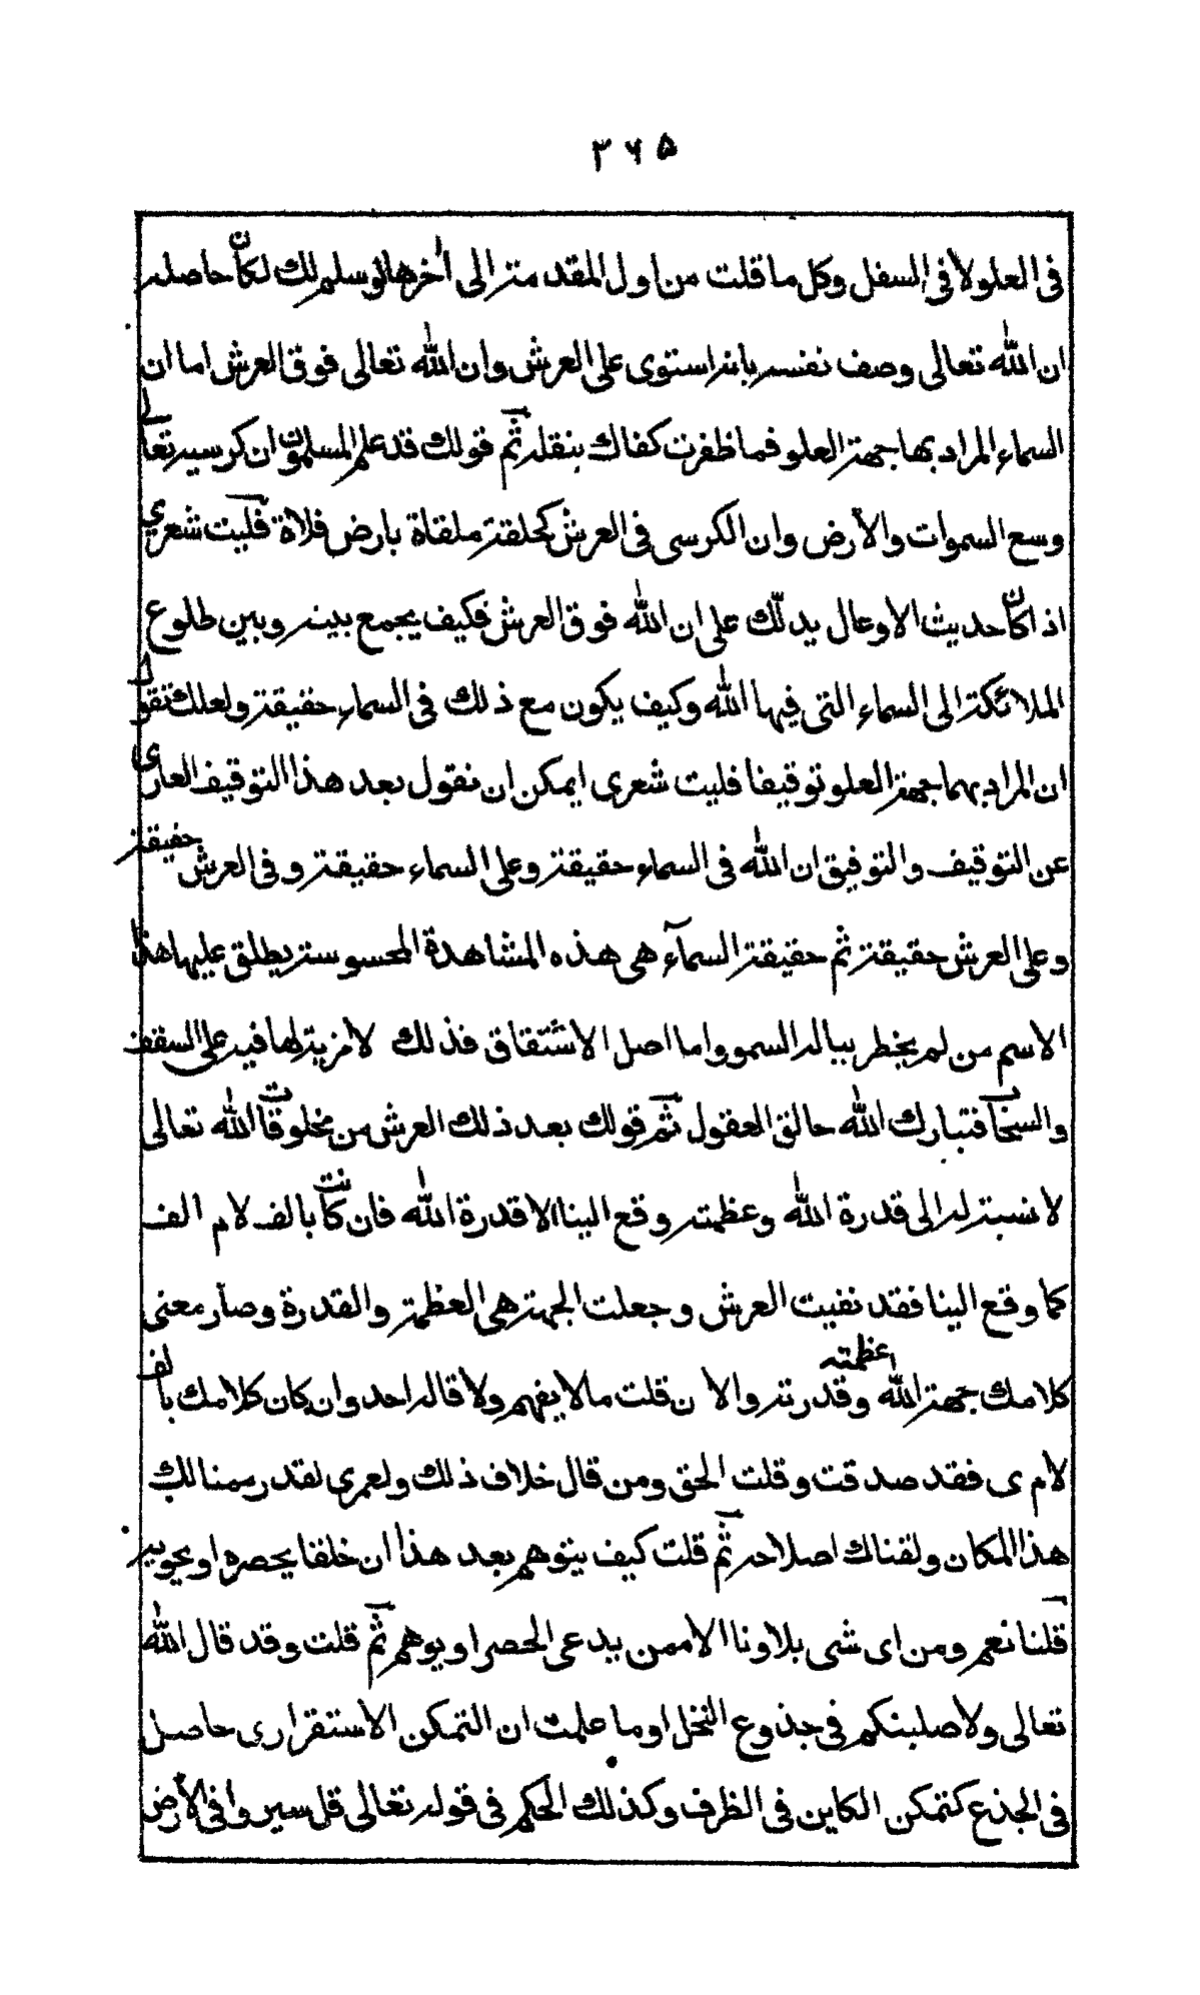 ٣٦٥
فى العلو ولا فى السفل وكل ما قلت من اول المقدمة الى اخرها لو سلم لك لكان حاصله
ان الله تعالى وصف نفسه بانه استوى على العرش وان الله تعالى فوق العرش اما ان
السماء المراد بها جهة العلو فما ظفرت كفاك بنقله ثم قولك قد علم المسلمون ان كرسيه تعالى
وسع السموات والأرض وان الكرسى فى العرش كحلقة ملقاة بارض فلاة فليت شعري
اذا كان حديث الاوعال يدلّك على ان الله فوق العرش فكيف يجمع بينه وبين طلوع
الملائكة الى السماء التى فيها الله وكيف يكون مع ذلك فى السماء حقيقة ولعلك تقول
ان المراد بهما جهة العلو توقيفا فليت شعرى ايمكن ان نقول بعد هذا التوقيف العارى
عن التوقيف والتوفيق ان الله فى السماء حقيقة وعلى السماء حقيقة وفى العرش حقيقة
وعلى العرش حقيقة ثم حقيقة السمآء هى هذه المشاهدة المحسوسة يطلق عليها هذا
الاسم من لم يخطر بباله السمو واما اصل الاشتقاق فذلك لا مزية لها فيه على السقف
والسحاب فتبارك الله خالق العقول ثم قولك بعد ذلك العرش من مخلوقات الله تعالى
لا نسبة له الى قدرة الله وعظمته وقع الينا الا قدرة الله فان كانت بالف لام الف
كما وقع الينا فقد نفيت العرش وجعلت الجهة هى العظمة والقدرة وصار معنى
كلامك جهة الله عظمته وقدرته والان قلت ما لا يفهم ولا قاله احد وان كان كلامك بالف
لام ى فقد صدقت وقلت الحق ومن قال خلاف ذلك ولعمرى لقد رسمنا لك
هذا المكان ولقناك اصلاحه ثم قلت كيف يتوهم بعد هذا ان خلقا يحصره او يحويه
قلنا نعم ومن اى شى بلاونا الا ممن يدعى الحصر او يوهمه ثم قلت وقد قال الله
تعالى ولاصلبنكم فى جذوع النخل اوما علمت ان التمكن الاستقرارى حاصل
فى الجذع كتمكن الكاين فى الظرف وكذلك الحكم فى قوله تعالى قل سيروا فى الأرض